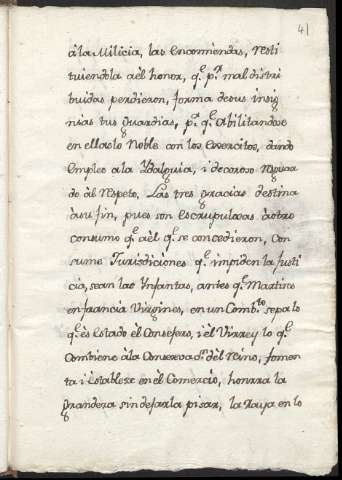 41
à la Milicia, las encomiendas, resti
tuiendola àel honor, q.e p.r mal distri
buidas perdieron, forma desus insig
nias tus guardias, p.a q.e abilitandose
en ellas lo Noble con los exercitos, dando
Empleo ala Ydalguia, i decoroso resguar
do àl respeto. Las tres gracias destina
àsu fin, pues son escrupulosas àotro
consumo q.e àel q.e se concedieron, Con
sume Jurisdiciònes q.e impiden la Justi
cia, sean las Ynfantas, antes q.e Martires
en francia Virgines, en un Comb.to sepa lo
q.e ès Estado el Consejero, i el Virrey lo q.e
Combiene àla Conservas.on dèl reino, fomen
ta i Establece en èl Comercio, honrra la
grandeza sin dejarla pisar, la raya en lo